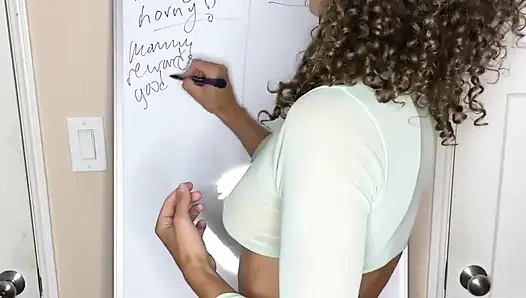 horny?
mommy
rewards
good